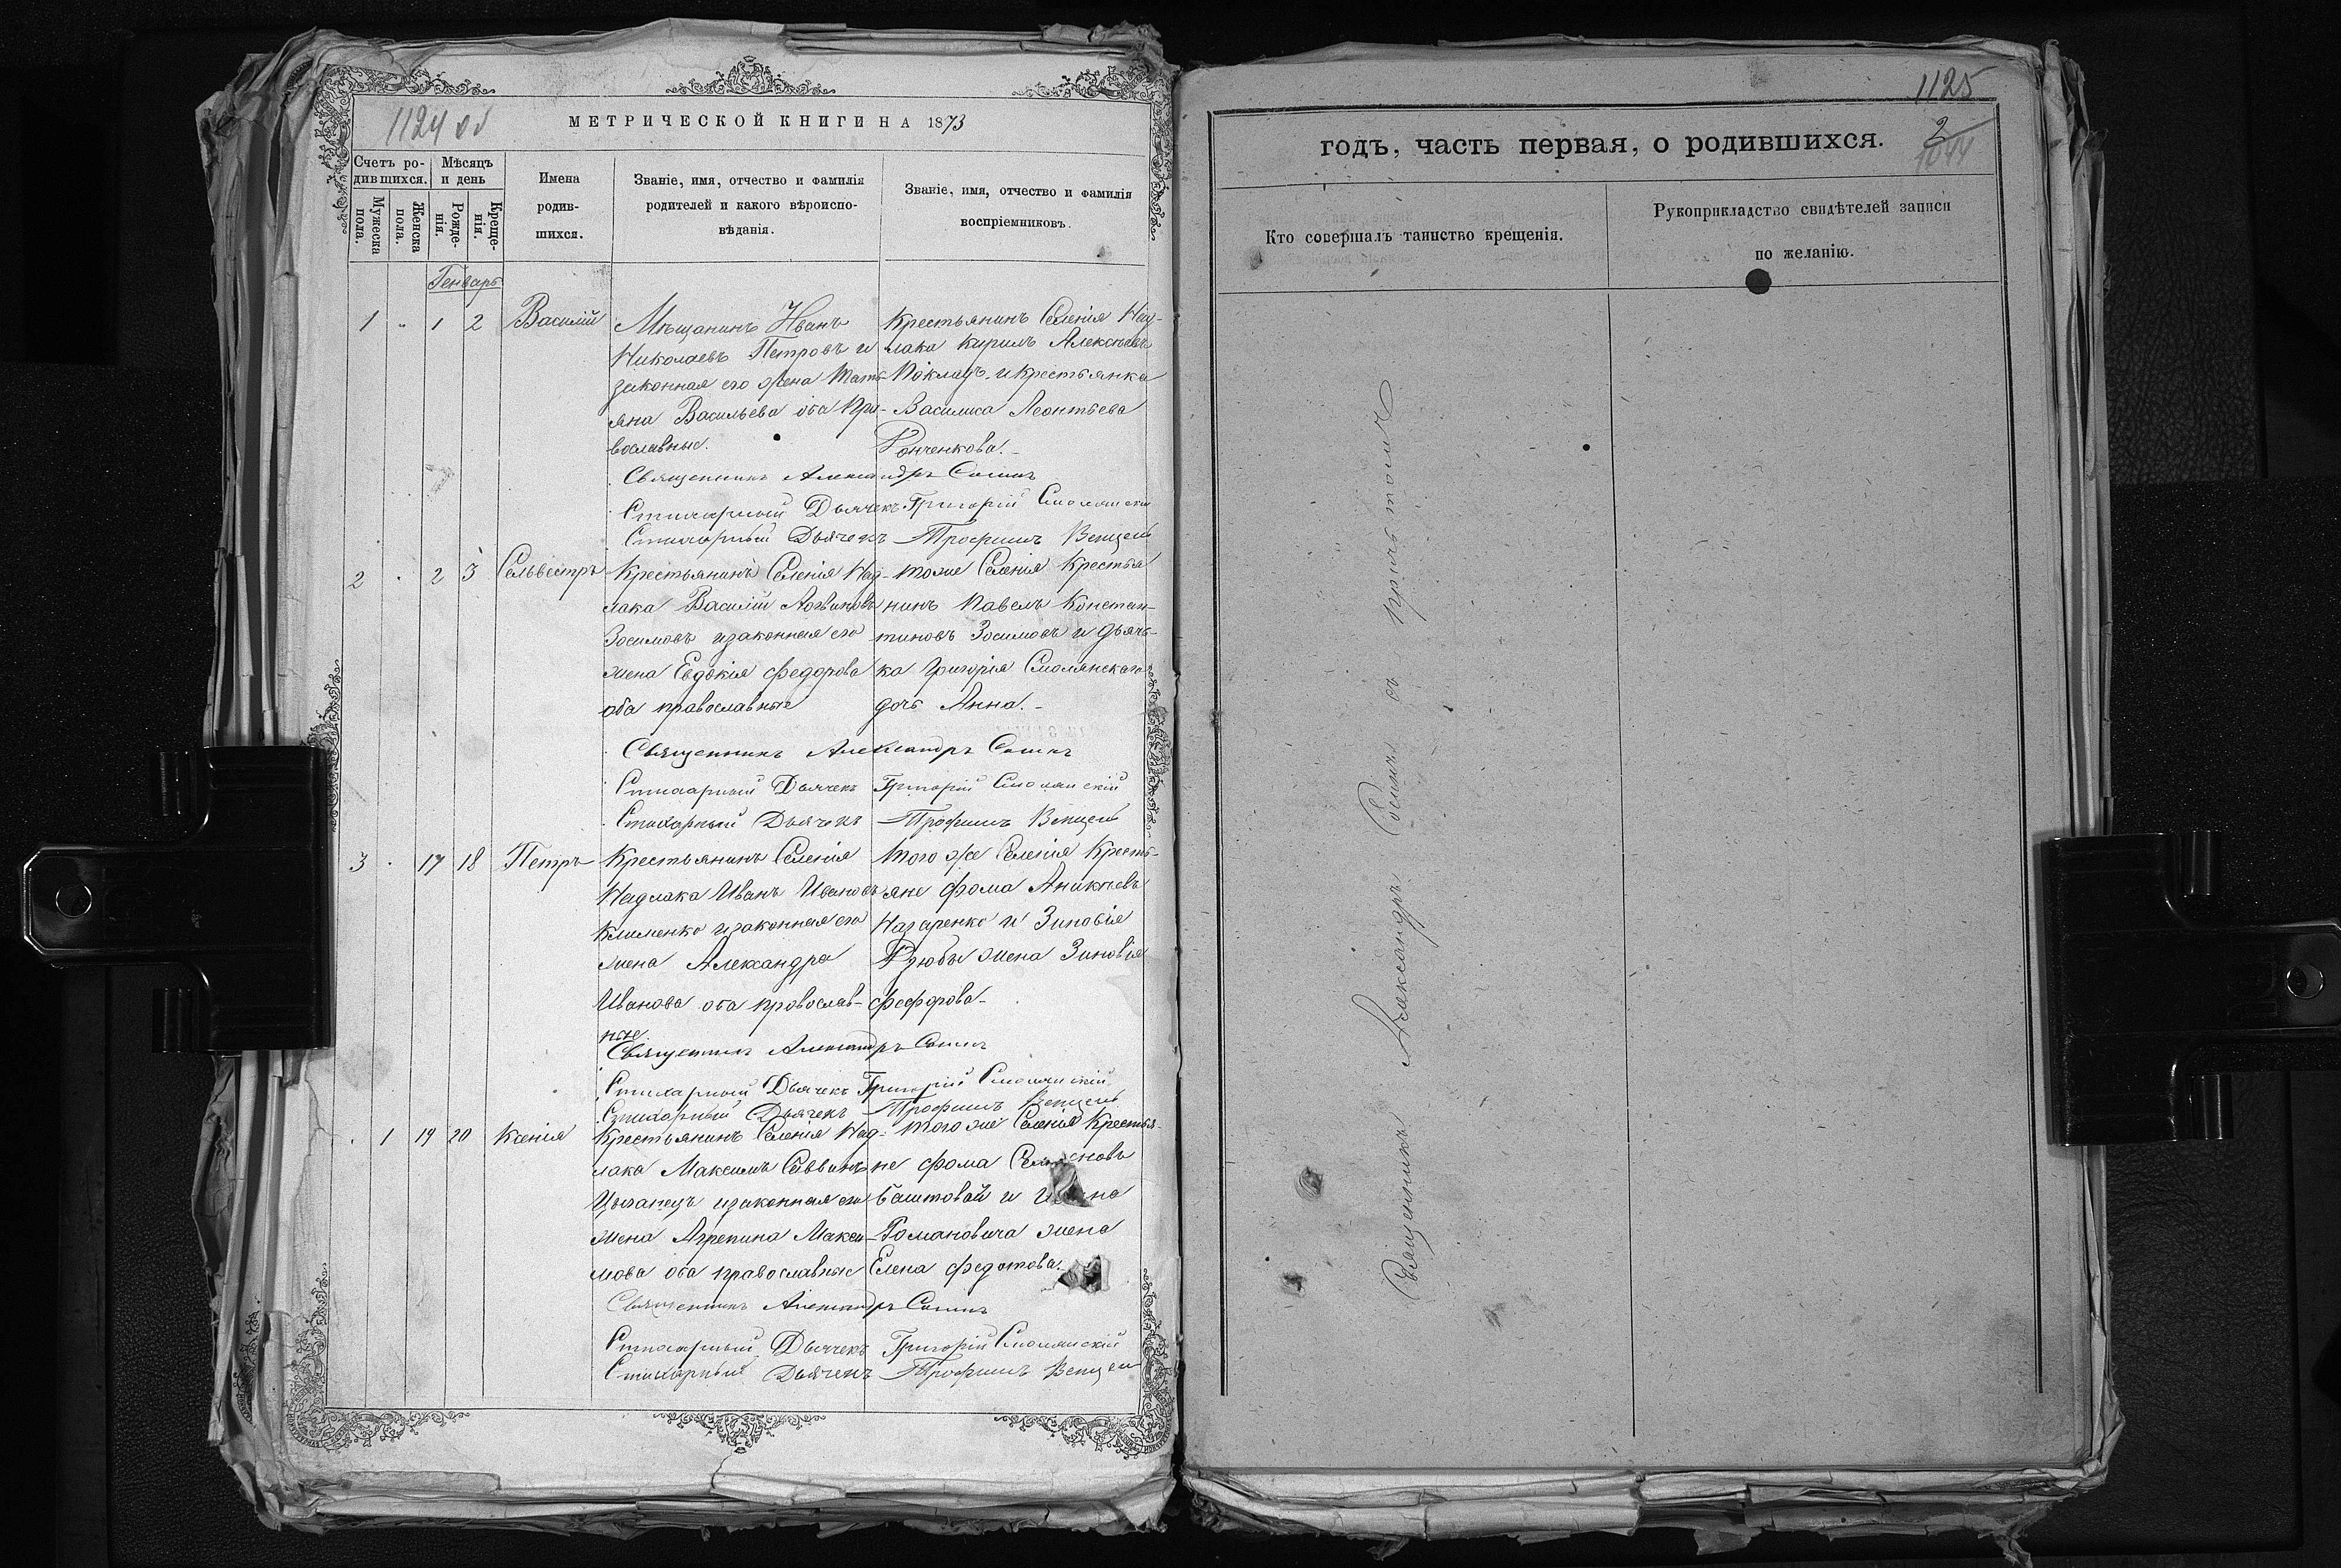 1124 об
МЕТРИЧЕСКОЙ КНИГИ НА 1873
Счетъ ро-
дившихся.
Мѣсяцъ
и день
Мужеска
пола.
Женска
пола.
Рожде-
нія.
Креще-
нія.
Имена
родив-
шихся.
Званіе, имя, отчество и фамилія
родителей и какого вѣроиспо-
вѣданія.
Званіе, имя, отчество и фамилія
воспріемниковъ.
Генварь
1 " 1 2 Василій
Мѣщанинъ Иванъ
Николаевъ Петровъ и
законная его жена Тать-
яна Васильева оба Пра-
вославные.
Крестьянинъ Селенія Над-
лака Кирилъ Алексѣевъ
и крестьянка
Василиса Леонтьева
Гонченкова.
Священникъ Александръ Сошинъ
Стихарный Дьячекъ Григорій Смолянскій
Стихарный Дьячекъ Трофимъ
2 " 2 3 Сельвестръ
Крестьянинъ Селенія Над-
лака Василій Логвиновъ
Зосимовъ и законная его
жена Евдокія Федорова
оба православные
тоже Селенія Крестья
нинъ Павелъ Констан-
тиновъ Зосимовъ и дьяч-
ка Григорія Смолянскаго
дочь Анна.
Священникъ Александръ Сошинъ
Стихарный Дьячекъ Григорій Смолянскій
Стихарный Дьячекъ Трофимъ
3 " 17 18 Петръ
Крестьянинъ Селенія
Надлака Иванъ Ивановъ
Клименко и законная его
жена Александра
Иванова оба православ-
ные.
Того же Селенія Кресть-
яне Фома Аникіевъ
Назаренко и Зиновія
жена Зиновія
Федорова
Священникъ Александръ Сошинъ
Стихарный Дьячекъ Григорій Смолянскій
Стихарный Дьячекъ Трофимъ
" 1 19 20 Ксенія
Крестьянинъ Селенія Над-
лака Максимъ Саввинъ
Цыганецъ и законная его
жена Агрепина Макси-
мова оба православные
Того же Селенія Крестья-
не Фома
Баштовой и
Романовича жена
Елена Федотова.
Священникъ Александръ Сошинъ
Стихарный Дьячекъ Григорій Смолянскій
Стихарный Дьячекъ Трофимъ
1125
годъ, часть первая, о родившихся.
2
1044
Кто совершалъ таинство крещенія.
Рукоприкладство свидѣтелей записи
по желанію.
Священникъ Александръ Сошинъ съ причтомъ